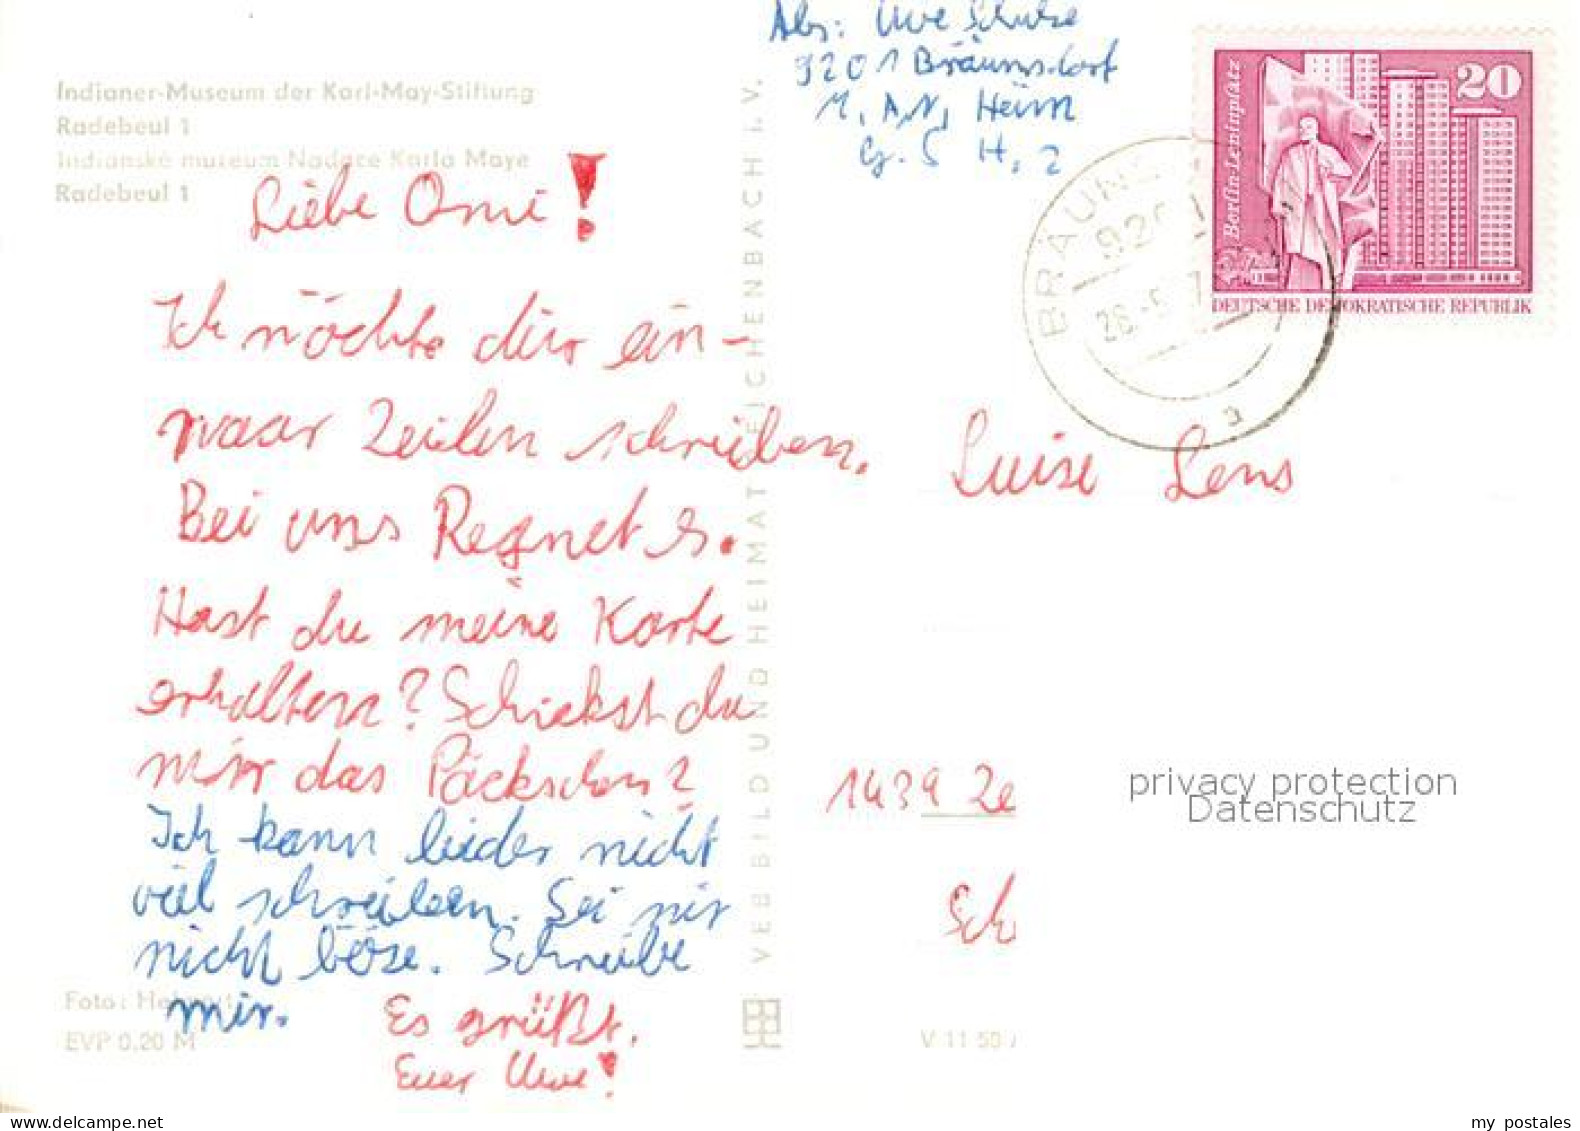 Abs: Uwe Schulze
9201 Bräunsdorf
M, A,N, Heim
G. 5 H, 2
Indianer-Museum der Karl-May-Stiftung
Radebeul 1
Indianské museum Nadace Karla Maye
Radebeul 1
20
Berlin-Leninplatz
DEUTSCHE DEMOKRATISCHE REPUBLIK
BRÄUNS
920
a
Liebe Omi!
Ich möchte dir ein-
maar Zeilen schreiben.
Bei uns Regnet es.
Hast du meine Karte
erhalten? Schickst du
mir das Päckschen?
Ich kann leider nicht
viel schreiben. Sei mir
nicht böse. Schreibe
mir.
Es grüßt.
Euer Uwe!
Luise Lens
1439 Ze
Sch
privacy protection
Datenschutz
VEB BILD UND HEIMAT REICHENBACH i. V.
Foto:
EVP 0,20 M
V 11 50
my postales